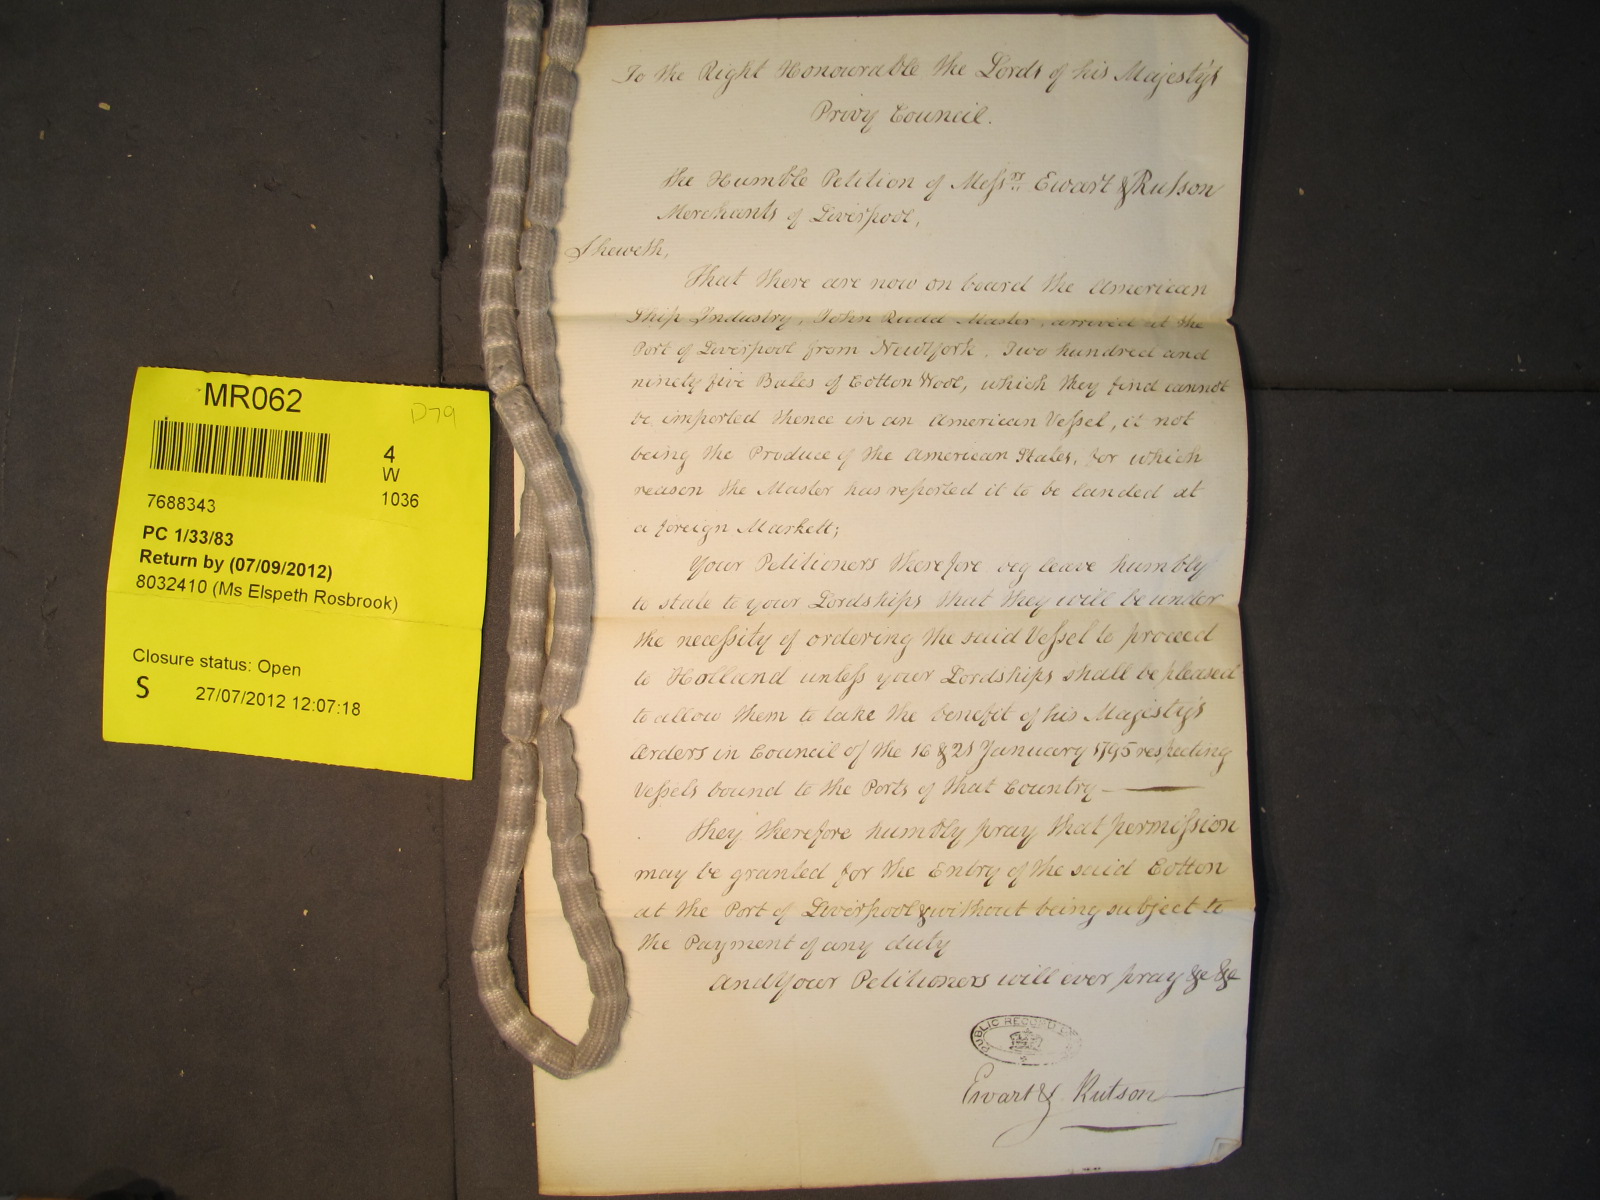 To the Right Honourable the Lords of his Majesty's
Privy Council.
The Humble Petition of Messrs. Ewart & Rutson
Merchants of Liverpool,
Sheweth,
That there are now on board the American
Ship Industry, John Rudd Master, arrived at the
Port of Liverpool from New York, Two hundred and
ninety five Bales of Cotton Wool, which they find cannot
be imported thence in an American Vessel, it not
being the Produce of the American States, for which
reason the Master has reported it to be landed at
a foreign Markett;
Your Petitioners therefore beg leave humbly
to state to your Lordships that they will be under
the necessity of ordering the said Vessel to proceed
to Holland unless your Lordships shall be pleased
to allow them to take the benefit of his Majesty's
Orders in Council of the 16 & 21 January 1795 respecting
Vessels bound to the Ports of that Country —
They therefore humbly pray that permission
may be granted for the Entry of the said Cotton
at the Port of Liverpool & without being subject to
the Payment of any duty
And Your Petitioners will ever pray &c &c
PUBLIC RECORD
Ewart & Rutson
MR062
D79
4
W
1036
7688343
PC 1/33/83
Return by (07/09/2012)
8032410 (Ms Elspeth Rosbrook)
Closure status: Open
S 27/07/2012 12:07:18